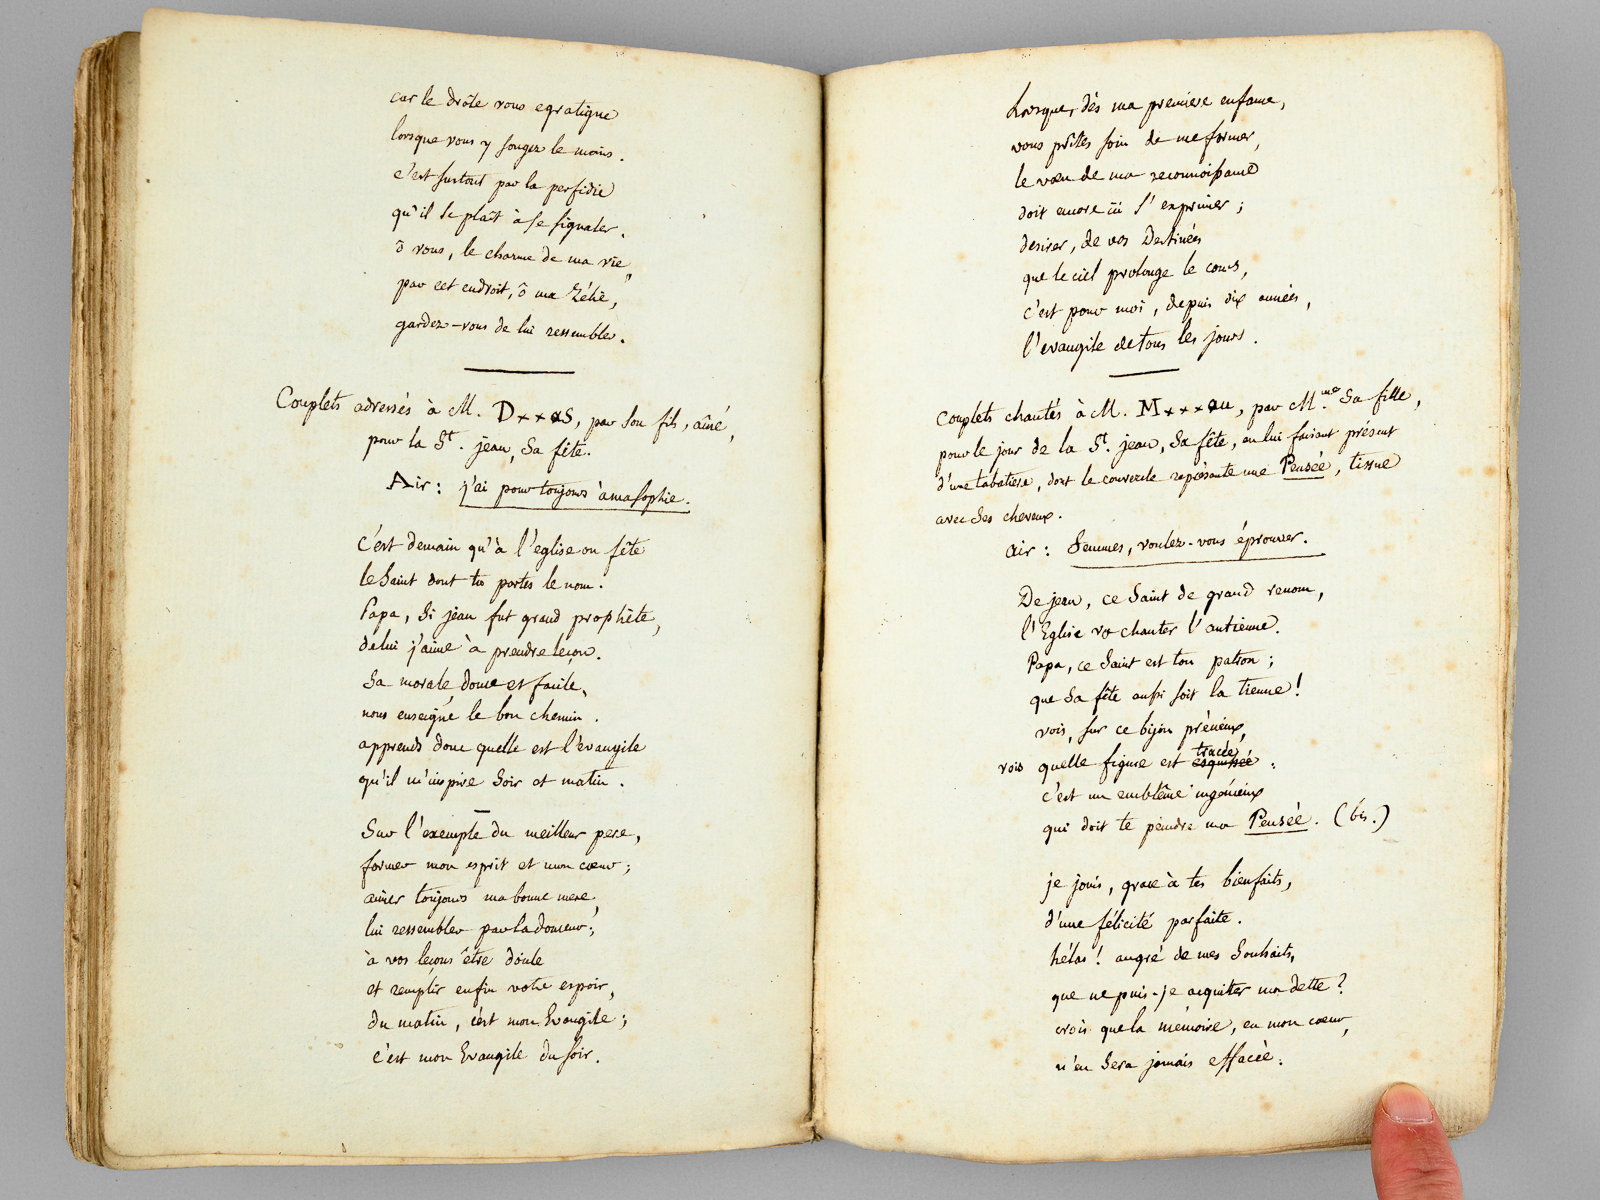 car le drôle vous egratigne
lorsque vous y songez le moins.
c'est surtout par la perfidie
qu'il se plaît à se signaler.
ô vous, le charme de ma vie,
par cet endroit, ô ma Zélie,
gardez-vous de lui ressembler.
Couplets adressés à M. D***as, par son fils, aîné,
pour la St. jean, Sa fête.
Air : j'ai pour toujours à ma sophie.
C'est demain qu'à l'eglise on fête
le Saint dont tu portes le nom.
Papa, Si jean fut grand prophête,
de lui j'aime à prendre leçon.
Sa morale, douce et facile,
nous enseigne le bon chemin.
apprends donc quelle est l'évangile
qu'il m'inspire Soir et matin.
Sur l'exemple du meilleur pere,
former mon esprit et mon cœur;
aimer toujours ma bonne mere,
lui ressembler par la douceur;
à vos leçons être docile
et remplir enfin votre espoir,
du matin, c'est mon Evangile;
c'est mon Evangile du soir.
Lorsque, dès ma premiere enfance,
vous prîtes soin de me former,
le vœu de ma reconnoissance
doit encore ici s'exprimer;
desirer, de vos Destinées
que le ciel prolonge le cours,
c'est pour moi, depuis dix années,
l'evangile de tous les jours.
Couplets chantés à M. M***au, par Mme. Sa fille,
pour le jour de la St. jean, Sa fête, en lui faisant présent
d'une tabatiere, dont le couvercle représente une Pensée, tissue
avec Ses cheveux.
air : femmes, voulez-vous éprouver.
De jean, ce Saint de grand renom,
l'Eglise va chanter l'antienne.
Papa, ce Saint est ton patron;
que Sa fête aussi soit la tienne!
vois, sur ce bijou précieux,
tracée
vois quelle figure est esquissée :
c'est un emblême ingénieux
qui doit te peindre ma Pensée. (bis.)
je jouis, grace à tes bienfaits,
d'une félicité parfaite.
hélas! augré de mes Souhaits,
que ne puis-je acquitter ma dette?
crois que la mémoire, en mon cœur,
n'en Sera jamais effacée: